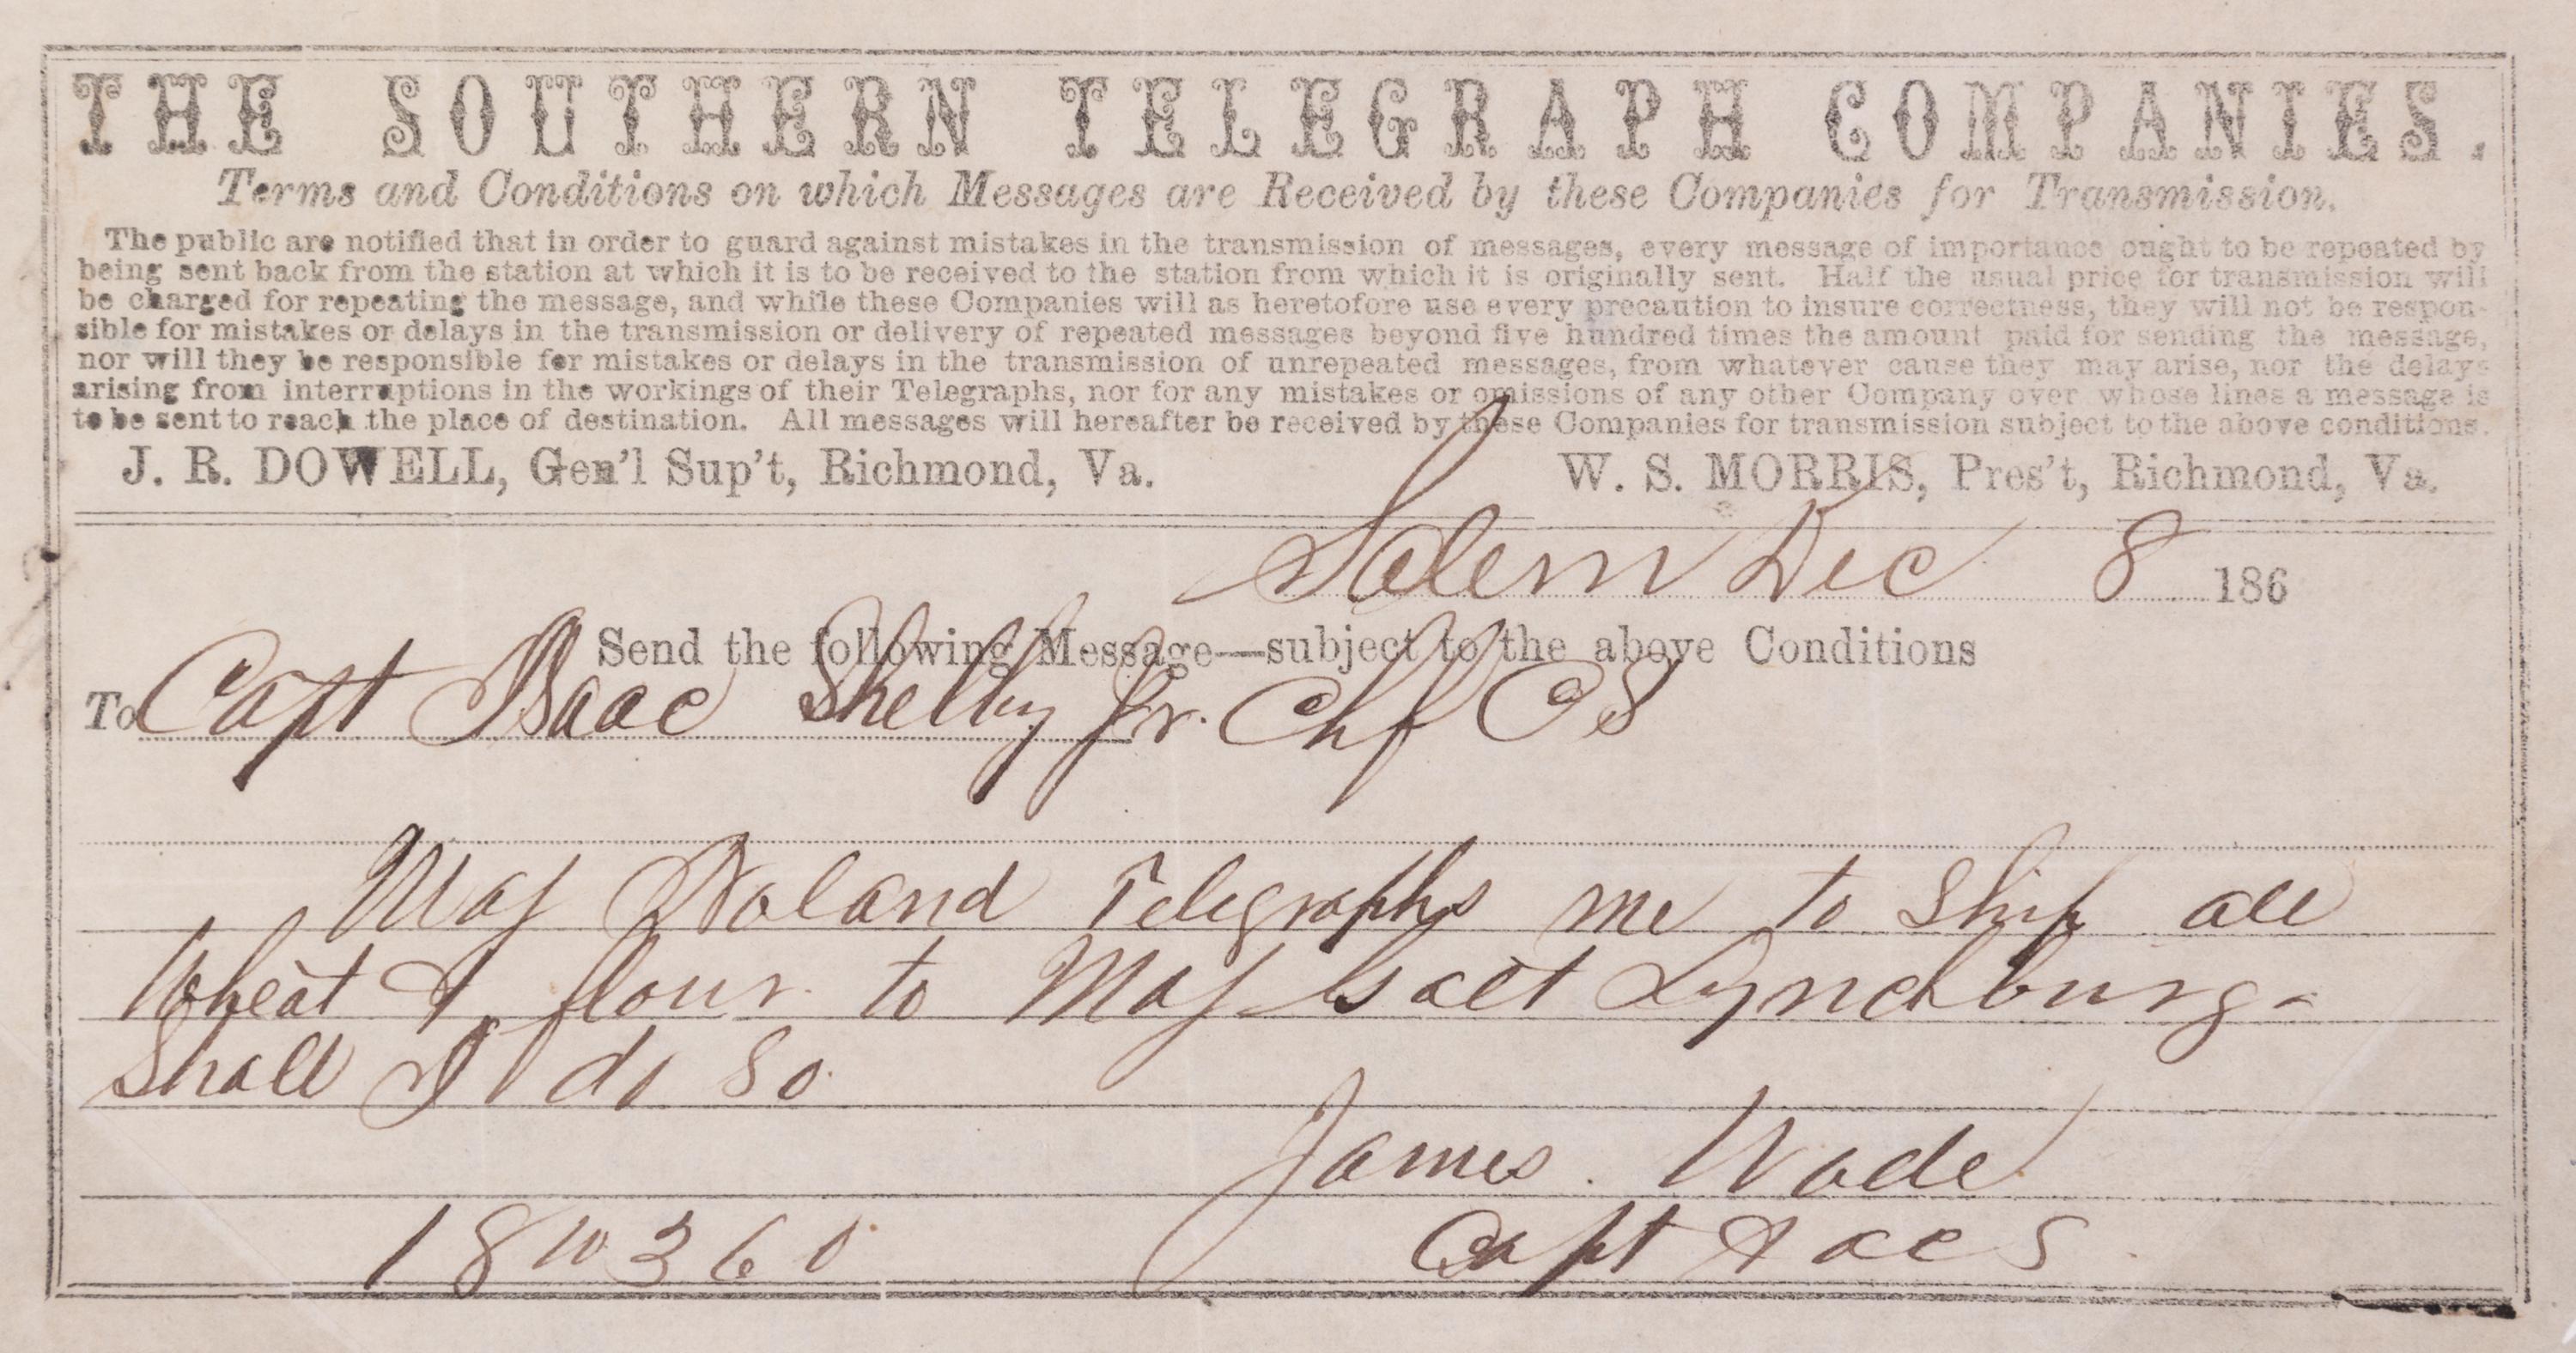 THE SOUTHERN TELEGRAPH COMPANIES.
Terms and Conditions on which Messages are Received by these Companies for Transmission.
The public are notified that in order to guard against mistakes in the transmission of messages, every message of importance ought to be repeated by
being sent back from the station at which it is to be received to the station from which it is originally sent. Half the usual price for transmission will
be charged for repeating the message, and while these Companies will as heretofore use every precaution to insure correctness, they will not be respon-
sible for mistakes or delays in the transmission or delivery of repeated messages beyond five hundred times the amount paid for sending the message,
nor will they be responsible for mistakes or delays in the transmission of unrepeated messages, from whatever cause they may arise, nor the delays
arising from interruptions in the workings of their Telegraphs, nor for any mistakes or omissions of any other Company over whose lines a message is
to be sent to reach the place of destination. All messages will hereafter be received by these Companies for transmission subject to the above conditions.
J. R. DOWELL, Gen'l Sup't, Richmond, Va. W. S. MORRIS, Pres't, Richmond, Va.
Salem Dec 8 186
Send the following Message—subject to the above Conditions
To Capt Isaac Shelby Jr. Chf CS
Maj Noland Telegraphs me to Ship all
Wheat & flour to Maj Galt Lynchburg -
Shall I do so
James Wade
18 W 360 Capt & acs